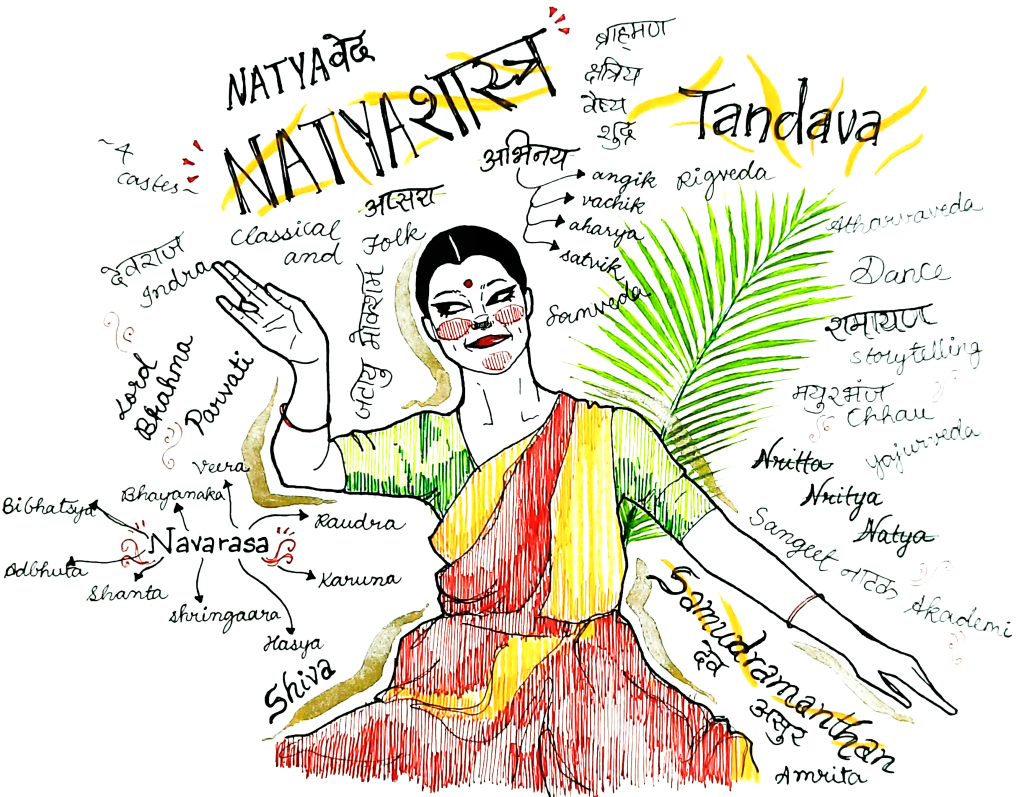 NATYAवेद
NATYAशास्त्र
~4
castes~
ब्राह्मण
क्षत्रिय
वैश्य
शुद्र
Tandava
अभिनय
angik
vachik
aharya
satvik
Rigveda
Samveda
Atharvaveda
अप्सरा
Classical
and Folk
देवराज
Indra
Lord
Brahma
Parvati
जटायु मोक्शम
Dance
रामायण
storytelling
मयुरभंज
Chhau
Yajurveda
Nritta
Nritya
Natya
Sangeet नाटक Akademi
Navarasa
Veera
Bhayanaka
Bibhatsya
Adbhuta
Shanta
Shringaara
Hasya
Karuna
Raudra
Shiva
Samudramanthan
देव
असुर
Amrita